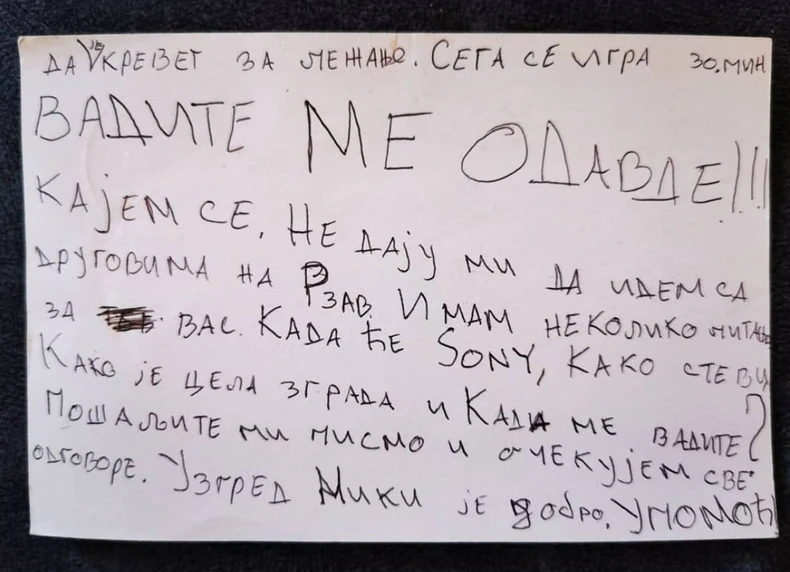 ДА ЈЕ КРЕВЕТ ЗА ЛЕЖАЊЕ. СЕГА СЕ ИГРА 30.МИН
ВАДИТЕ МЕ ОДАВДЕ!!!
КАЈЕМ СЕ. НЕ ДАЈУ МИ ДА ИДЕМ СА
ДРУГОВИМА НА РЗАВ. ИМАМ НЕКОЛИКО ПИТАЊ
ЗА ВАС. КАДА ЋЕ SONY, КАКО СТЕ ВИ
КАКО ЈЕ ЦЕЛА ЗГРАДА И КАДА МЕ ВАДИТЕ?
ПОШАЉИТЕ МИ ПИСМО И ОЧЕКУЈЕМ СВЕ
ОДГОВОРЕ. УЗГРЕД МИКИ ЈЕ ДОБРО. УПОМОЋ!